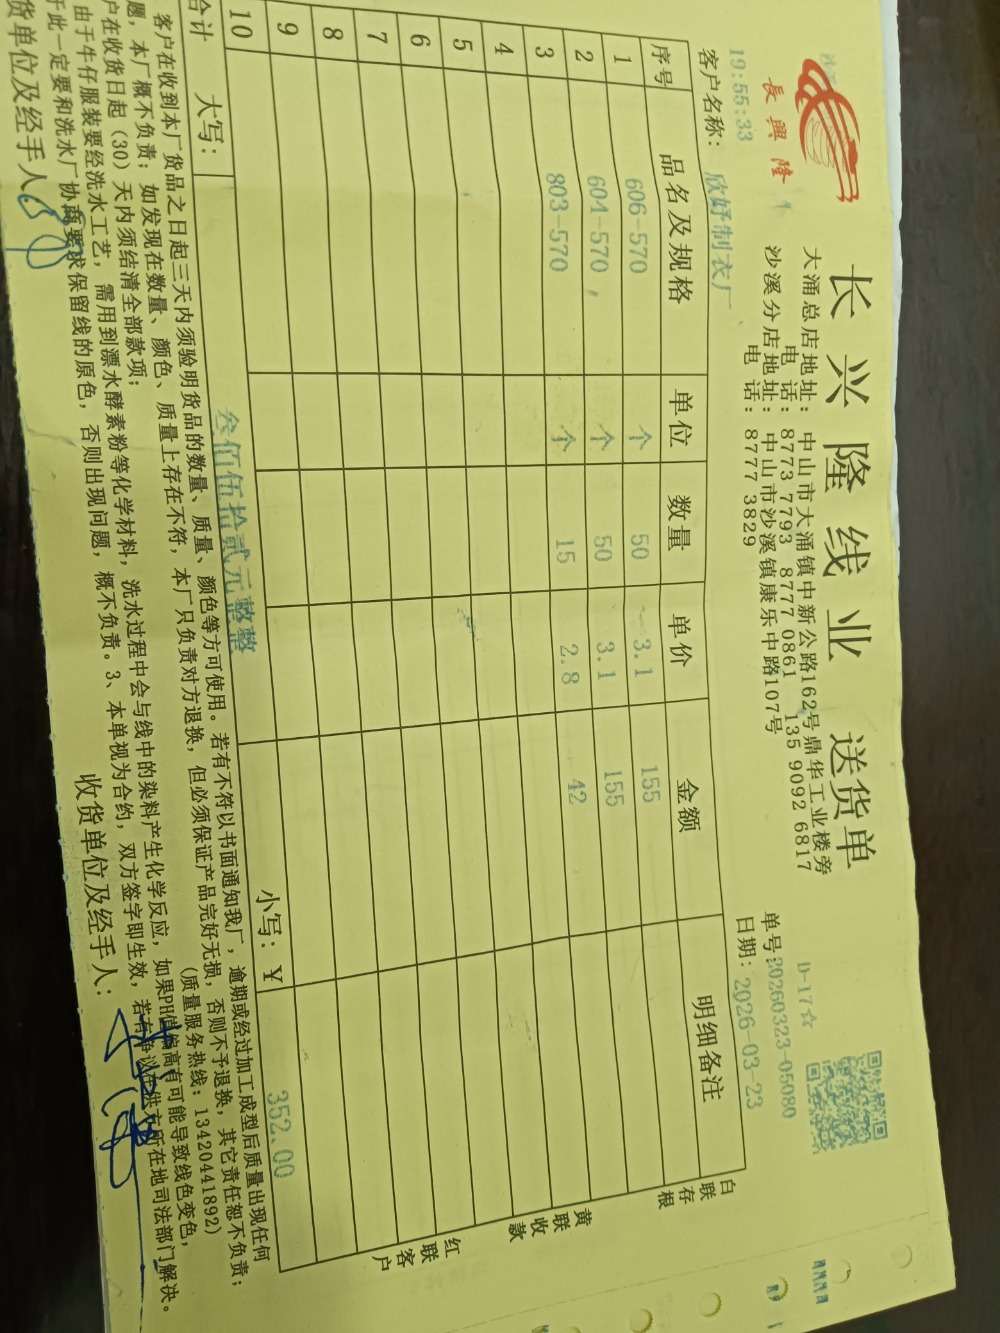 長興隆
长兴隆线业 送货单
大涌总店地址：中山市大涌镇中新公路162号鼎华工业楼旁
电 话：8773 7793 8777 0861 135 9092 6817
沙溪分店地址：中山市沙溪镇康乐中路107号
电 话：8777 3829
D-17☆
单号：20260323-05080
19:55:33
客户名称：欣妤制衣厂
日期：2026-03-23
序号 品名及规格 单位 数量 单价 金额 明细备注
1 606-570 个 50 3.1 155
2 604-570 个 50 3.1 155
3 803-570 个 15 2.8 42
4
5
6
7
8
9
10
合计 大写：叁佰伍拾贰元整整 小写：¥ 352.00
白联存根
黄联收款
红联客户
客户在收到本厂货品之日起三天内须验明货品的数量、质量、颜色等方可使用。若有不符以书面通知我厂，逾期或经过加工成型后质量出现任何
题，本厂概不负责；如发现在数量、颜色、质量上存在不符，本厂只负责对方退换，但必须保证产品完好无损，否则不予退换，其它责任恕不负责；
户在收货日起（30）天内须结清全部款项；
（质量服务热线：13420441892）
由于牛仔服装要经洗水工艺，需用到漂水酵素粉等化学材料，洗水过程中会与线中的染料产生化学反应，如果PH值偏高有可能导致线色变色，
于此一定要和洗水厂协商要求保留线的原色，否则出现问题，概不负责。3、本单视为合约，双方签字即生效，若有争议在供方所在地司法部门解决。
货单位及经手人
收货单位及经手人：